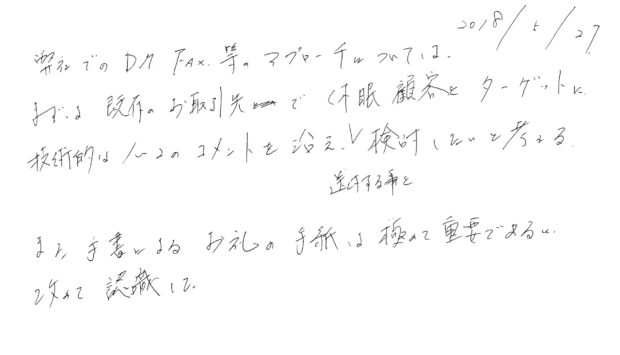 2018/5/27
弊社でのDM.FAX.等のアプローチについては、
まずは既存のお取引先で休眠顧客をターゲットに
技術的な1〜2のコメントを沿え、検討したいと考える。
送付する事を
また手書による お礼の手紙は極めて重要であると
改めて認識した。